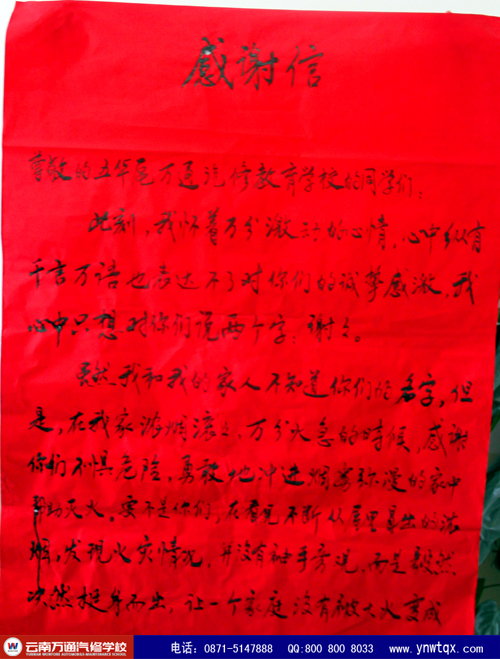 感谢信
尊敬的五华区万通汽修教育学校的同学们：
此刻，我怀着万分激动的心情，心中纵有
千言万语也表达不了对你们的诚挚感激，我
心中只想对你们说两个字：谢々。
虽然我和我的家人不知道你们的名字，但
是，在我家浓烟滚々、万分火急的時候，感谢
你们不惧危险，勇敢地冲进烟雾弥漫的家中
帮助灭火。要不是你们，在看见不断从屋里冒出的浓
烟，发现火灾情况，并没有袖手旁观，而是毅然
决然挺身而出，让一个家庭没有被大火变成
云南万通汽修学校
YUNNAN WONTONE AUTOMOBILE MAINTENANCE SCHOOL
电话：0871-5147888 QQ:800 800 8033 www.ynwtqx.com